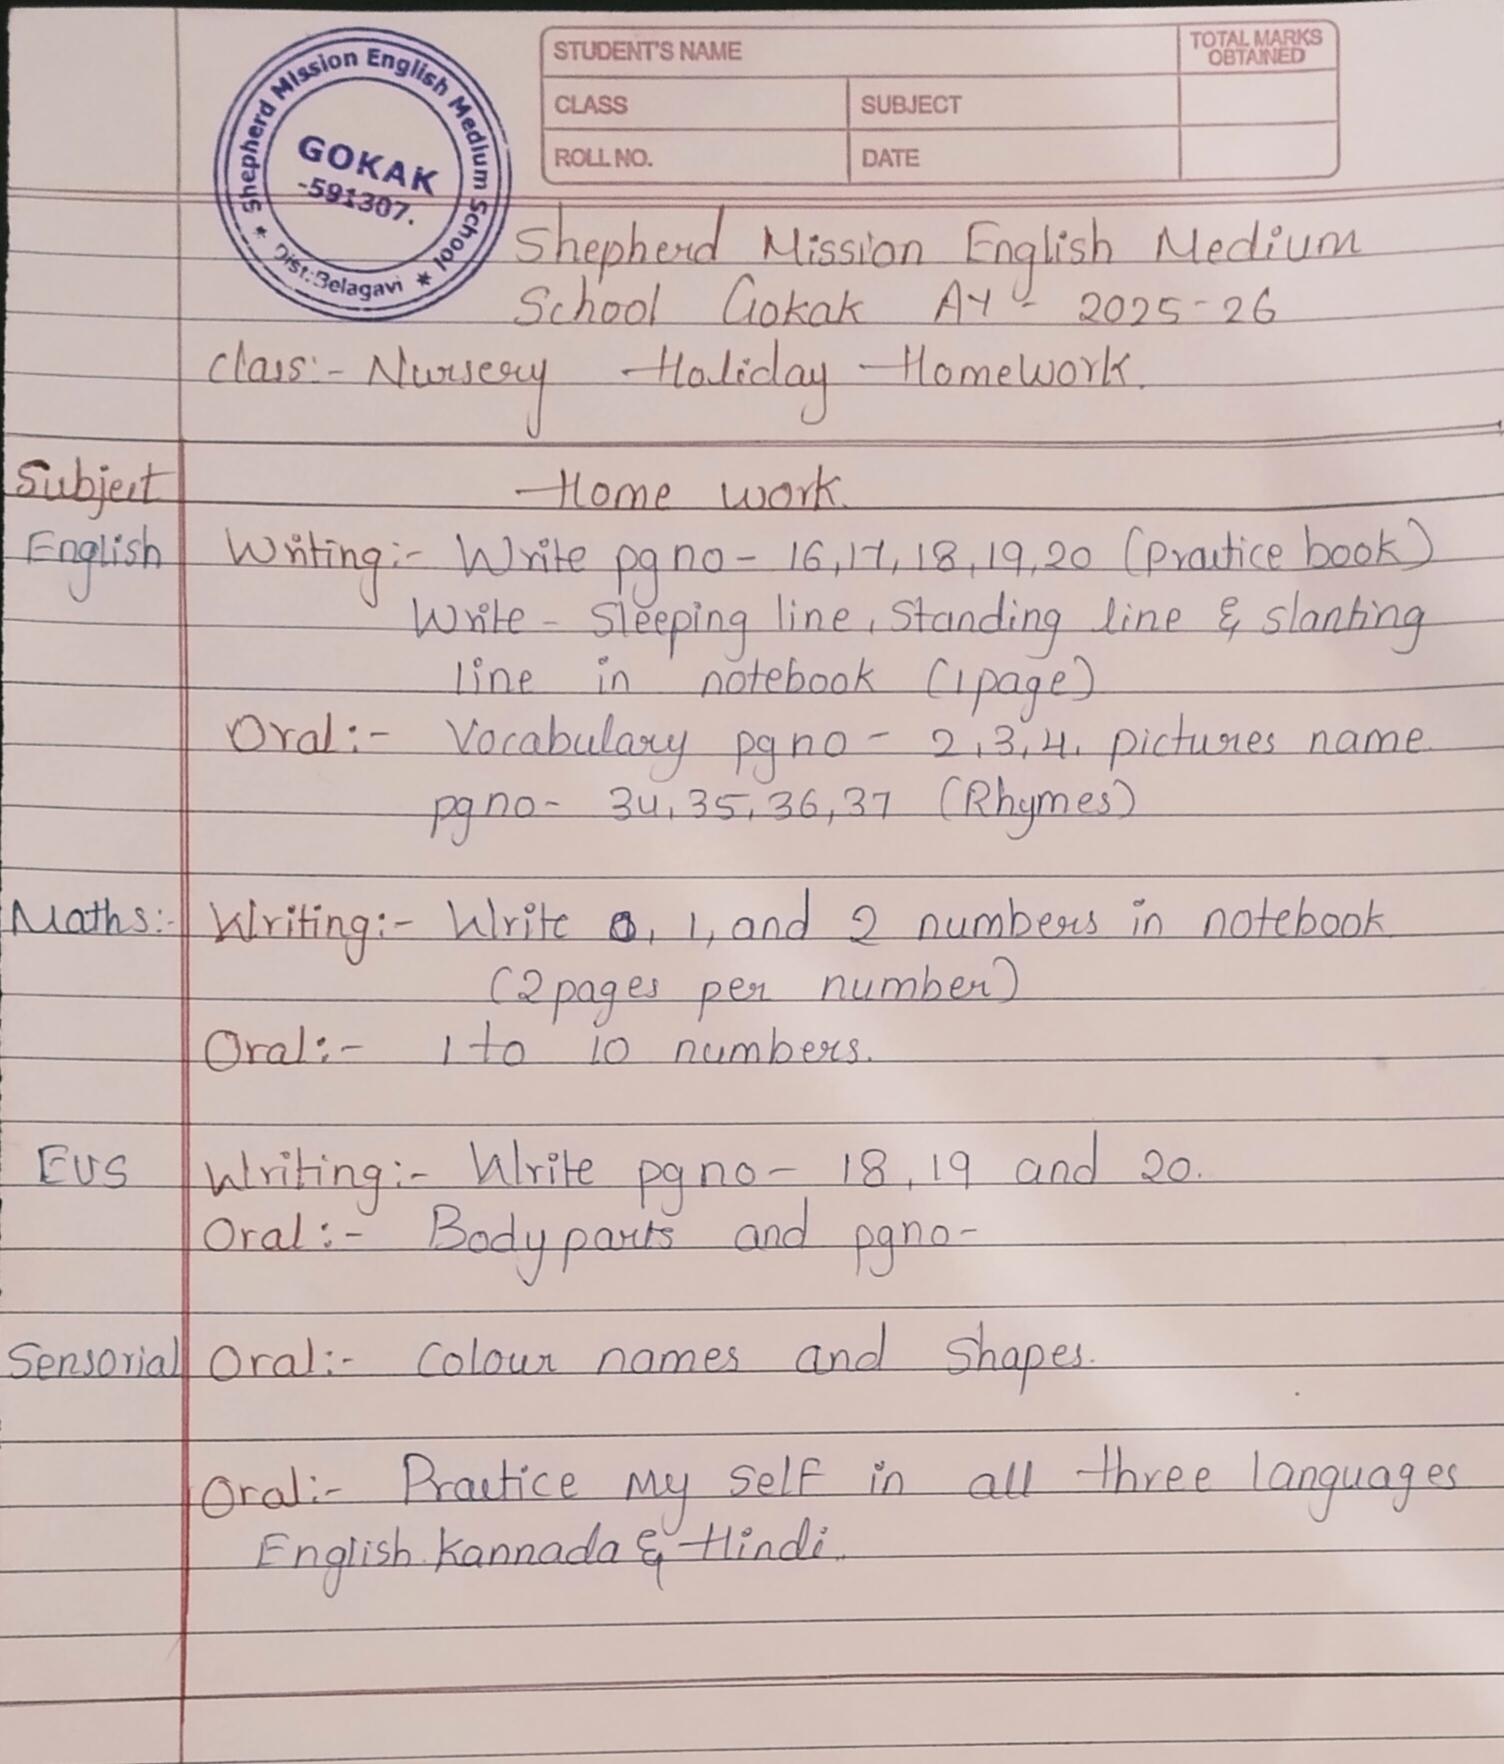 Shepherd Mission English Medium School
GOKAK
-591307.
★ Dist:Belagavi ★
STUDENT'S NAME
TOTAL MARKS OBTAINED
CLASS
SUBJECT
ROLL NO.
DATE
Shepherd Mission English Medium
School Gokak AY - 2025-26
Class:- Nursery Holiday Homework.
Subject Home work.
English Writing:- Write pg no - 16,17,18,19,20 (Practice book)
Write - Sleeping line, Standing line & slanting
line in notebook (1page)
Oral:- Vocabulary pg no - 2,3,4. pictures name
pg no- 34,35,36,37 (Rhymes)
Maths:- Writing:- Write 0, 1, and 2 numbers in notebook
(2 pages per number)
Oral:- 1 to 10 numbers.
EVS Writing:- Write pg no- 18, 19 and 20.
Oral:- Body parts and pg no-
Sensorial Oral:- Colour names and Shapes.
Oral:- Practice My Self in all three languages
English Kannada & Hindi.